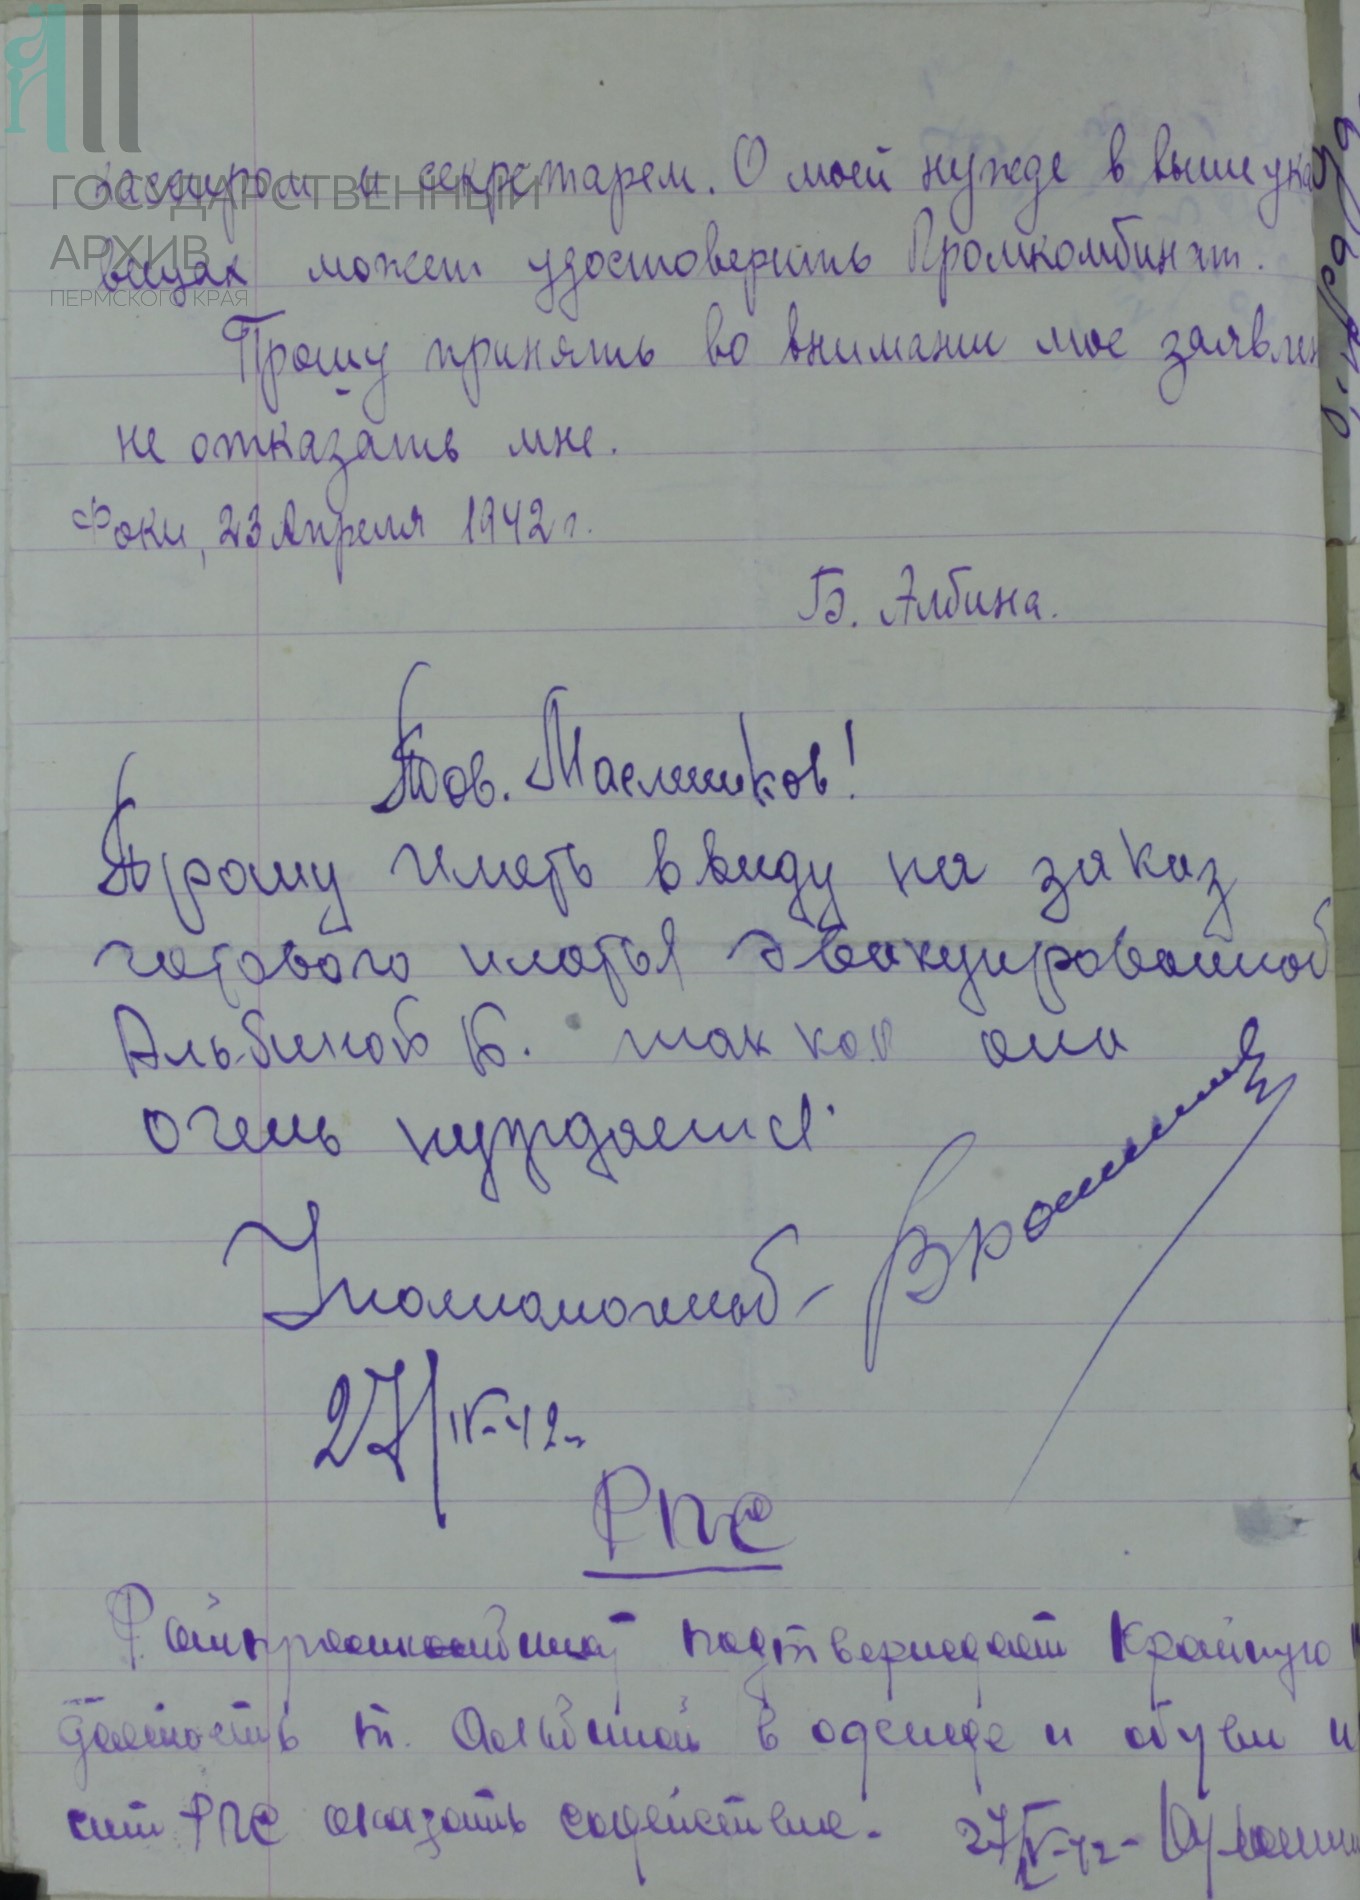 ГОСУДАРСТВЕННЫЙ
АРХИВ
ПЕРМСКОГО КРАЯ
кассиром и секретарем. О моей нужде в вышеука
вещах может удостоверить Промкомбинат.
Прошу принять во внимание мое заявлен
не отказать мне.
Фоки, 23 Апреля 1942 г.
Б. Албина.
Тов. Масленников!
Прошу иметь ввиду на заказ
готового платья эвакуированной
Альбиной Б. так как она
очень нуждается.
Уполномоченный -
27/IV-42
РПС
Райпромкомбинат подтверждает крайную
даемость т. Альбиной в одежде и обуви и
сит РПС оказать содействие. 27/IV-42-